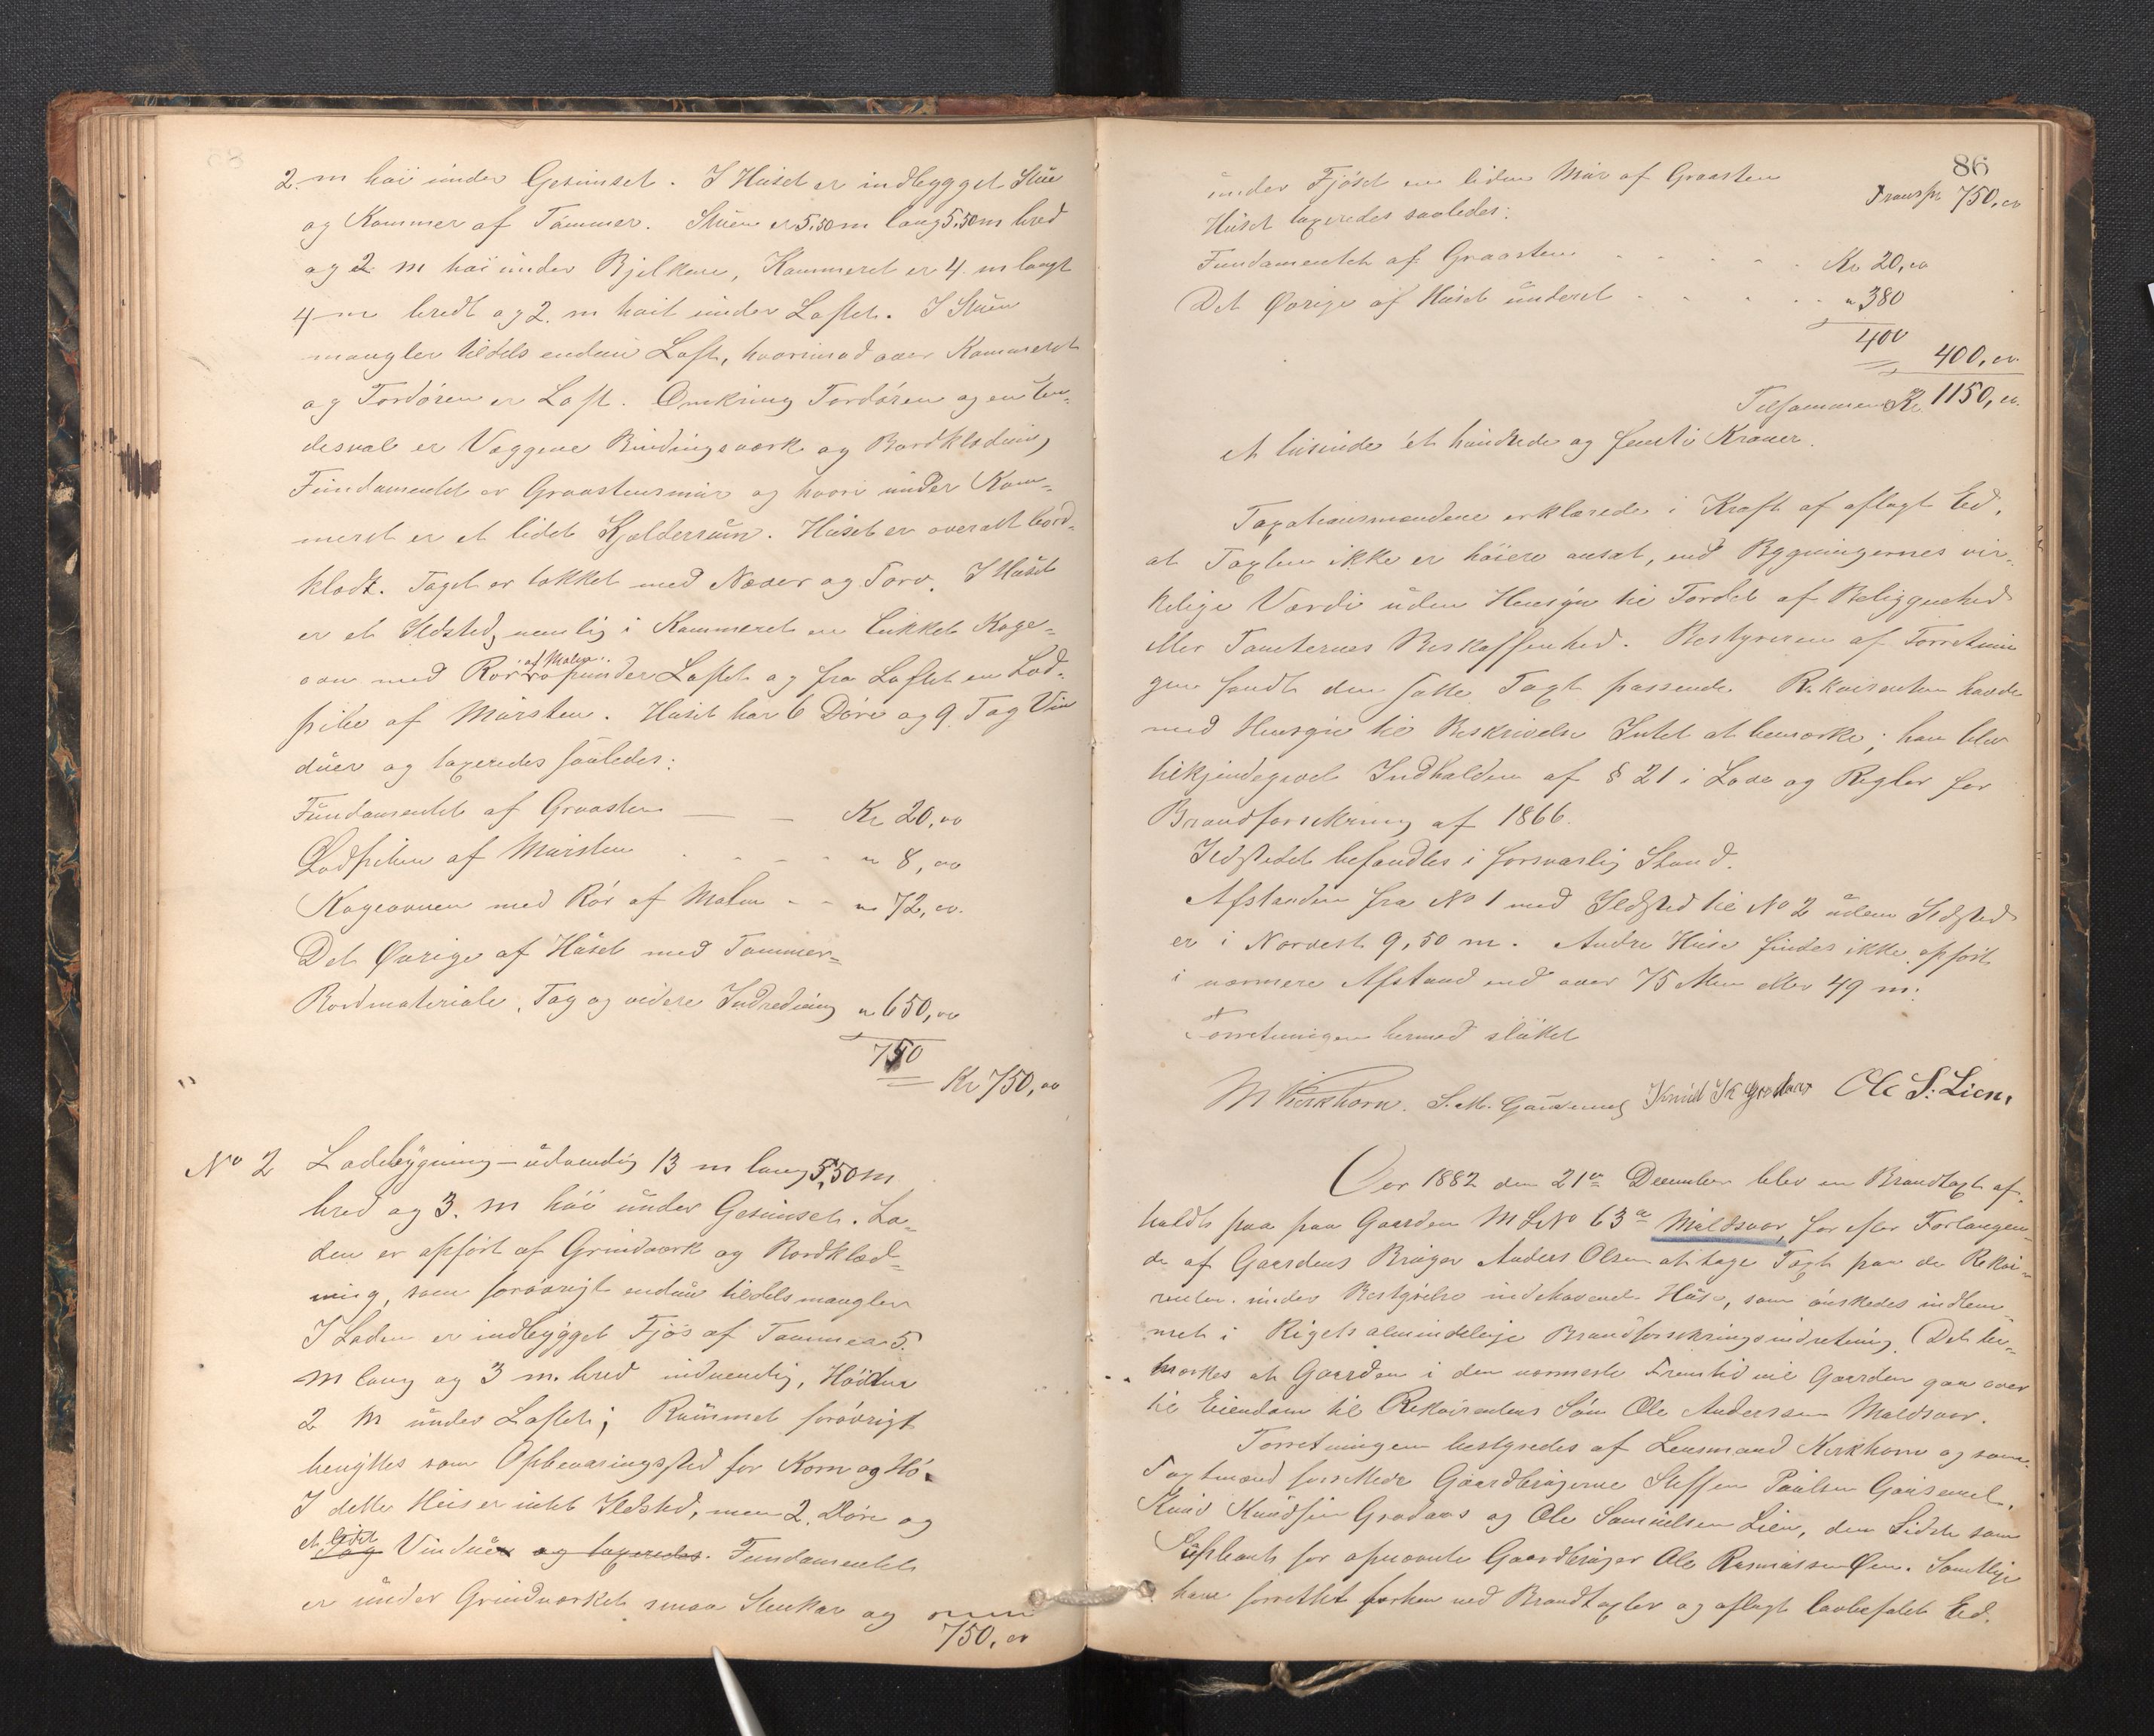 2. m høi under Gesimset. I Huset er indbygget Stue
og Kammer af Tømmer. Stuen er 5.50m lang 5.50m bred
og 2 m høi under Bjelkene, Kammeret er 4 m langt
4 m bredt og 2. m høit under Loftet. I Stuen
mangler tildels endnu Loft, hvorimod over Kammeret
og Fordøren er Loft. Omkring Fordøren og en Un-
desval er Væggene Bindingsværk og Bordklædning,
Fundamentet er Graastensmur og hvori under Kam-
meret er et lidet Kjælderrum. Huset er overalt bord-
klædt. Taget er tækket med Næver og Torv. I Huset
er et Ildsted, nemlig i Kammeret en lukket Koge-
ovn med Rør af Malm op under Loftet og fra Loftet en Lod-
pibe af Mursten. Huset har 6 Døre og 9. Fag Vin
duer og taxeredes saaledes:
Fundamentet af Graasten — — Kr 20,00
Lodpiben af Mursten . - - - - " 8,00
Kogeovnen med Rør af Malm - - " 72,00.
Det Øvrige af Huset med Tømmer-
Bordmateriale, Tag og videre Indredning " 650,00
750
Kr 750,00
No 2 Ladebygning – udvendig 13 m lang 5,50m
bred og 3. m høi under Gesimset. La-
den er opført af Grindværk og Bordklæd-
ning, som forøvrigt endnu tildels mangler
I Laden er indbygget Fjøs af Tømmer 5.
m lang og 3 m. bred indvendig, Høiden
2 m under Loftet; Rummet forøvrigt
benyttes som Opbevaringssted for Korn og Hø.
I dette Hus er intet Ildsted, men 2. Døre og
et lidet Fag Vinduer og taxeredes. Fundamentet
er under Grindværket smaa Stenkar og
750,00
86
under Fjøset en liden Mur af Graasten
Transp. 750,00
Huset taxeredes saaledes:
Fundamentet af Graasten - - - - Kr 20,00
Det Øvrige af Huset underet - - - - " 380
400
400,00
Tilsammen Kr. 1150,00.
et tusinde et hundrede og femti Kroner.
Taxationsmændene erklærede i Kraft af aflagt Ed,
at Taxten ikke er høiere ansat, end Bygningernes vir-
kelige Værdi uden Hensyn til Fordel af Beliggenhed
eller Tomternes Beskaffenhed. Bestyreren af Forretnin
gen fandt den satte Taxt passende. Rekvirenten havde
med Hensyn til Beskrivelse Intet at bemærke; han blev
tilkjendegivet Indholden af § 21 i Love og Regler for
Brandforsikring af 1866.
Ildstedet befandtes i forsvarlig Stand.
Afstanden fra No 1 med Ildsted til No 2 uden Ildsted
er i Nordvest 9,50 m. Andre Huse findes ikke opført
i nærmere Afstand end over 75 Alen eller 49 m.
Forretningen hermed sluttet
M Kirkhorn. S. M. Gausemel Knud K Grodaas Ole S. Lien.
Aar 1882 den 21de December blev en Brandtaxt af-
holdt paa paa Gaarden M L No 63a Muldsvor, for efter Forlangen-
de af Gaardens Bruger Anders Olsen at tage Taxt paa de Rekvi-
renten under Bestyrelse indehavende Huse, som ønskedes indlem-
met i Rigets almindelige Brandforsikringsindretning. Det be-
mærkes at Gaarden i den nærmeste Fremtid vil Gaarden gaa over
til Eiendom til Rekvirentens Søn Ole Anderssen Maldsvor.
Forretningen bestyredes af Lensmand Kirkhorn og som
Taxtmænd forrettede Gaardbrugerne Steffen Paulsen Gausemel,
Knud Knudsen Grodaas og Ole Samuelsen Lien, den Sidste som
Supleant for opnævnte Gaardbruger Ole Rasmussen Øen. Samtlige
have forrettet forhen ved Brandtaxter og aflagt lovbefalet Ed.